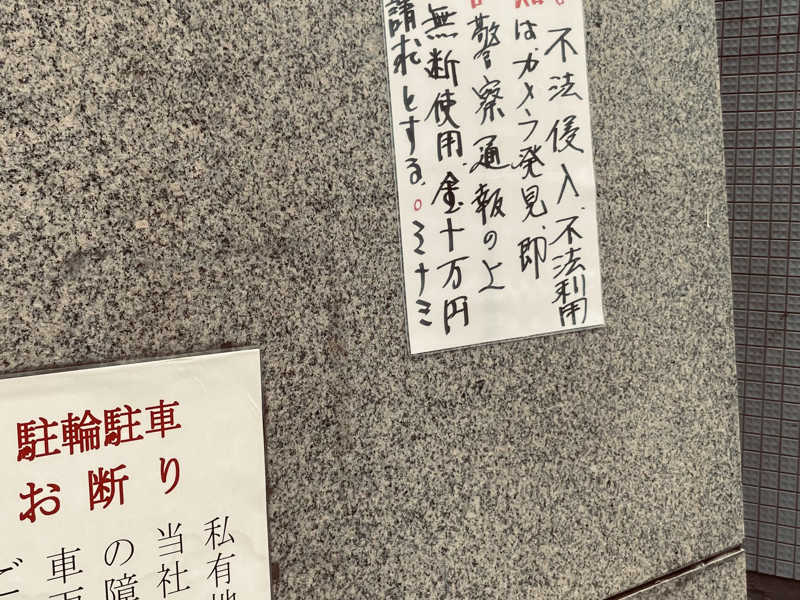 不法侵入、不法利用
はカメラ発見、即
警察通報の上
無断使用、金十万円
請求とする。ミナミ
駐輪駐車
お断り
私有地
当社
の障
車両
ご